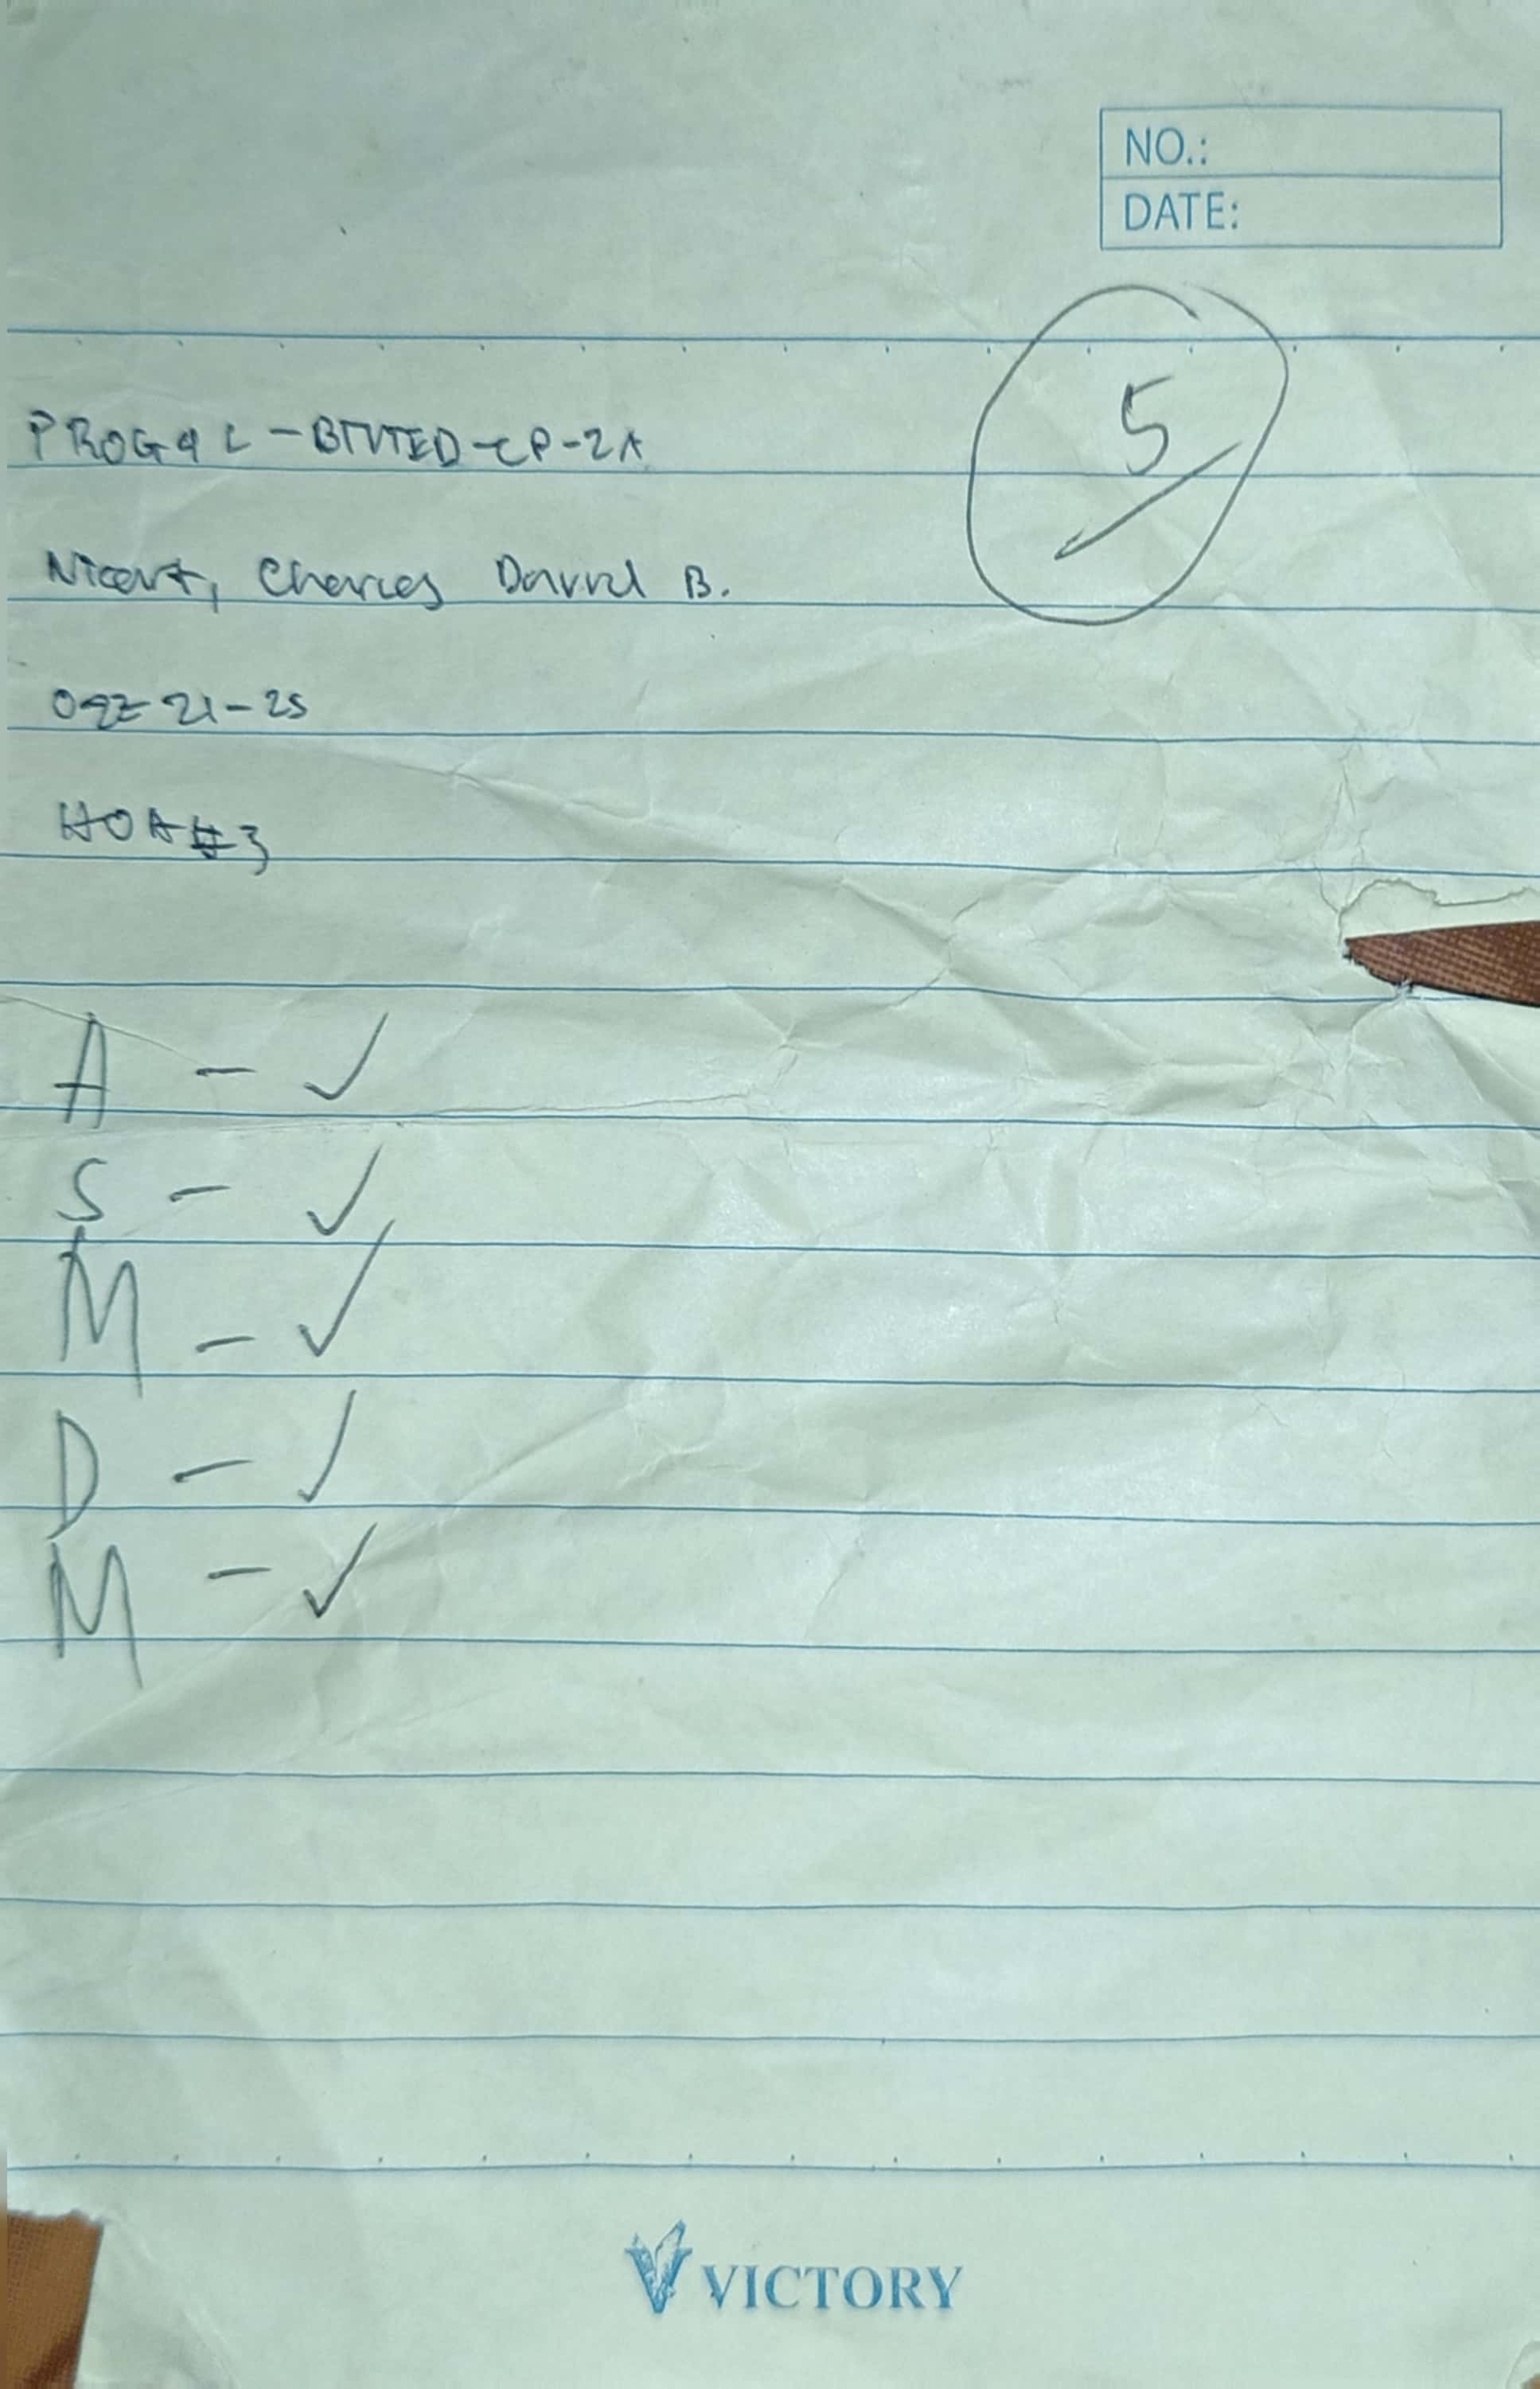 NO.:
DATE:
5
PROG4L - BTVTED-CP-2A
Nicart, Charles Darrel B.
21-25
HOA#3
A - ✓
S - ✓
M - ✓
D - ✓
M - ✓
VICTORY